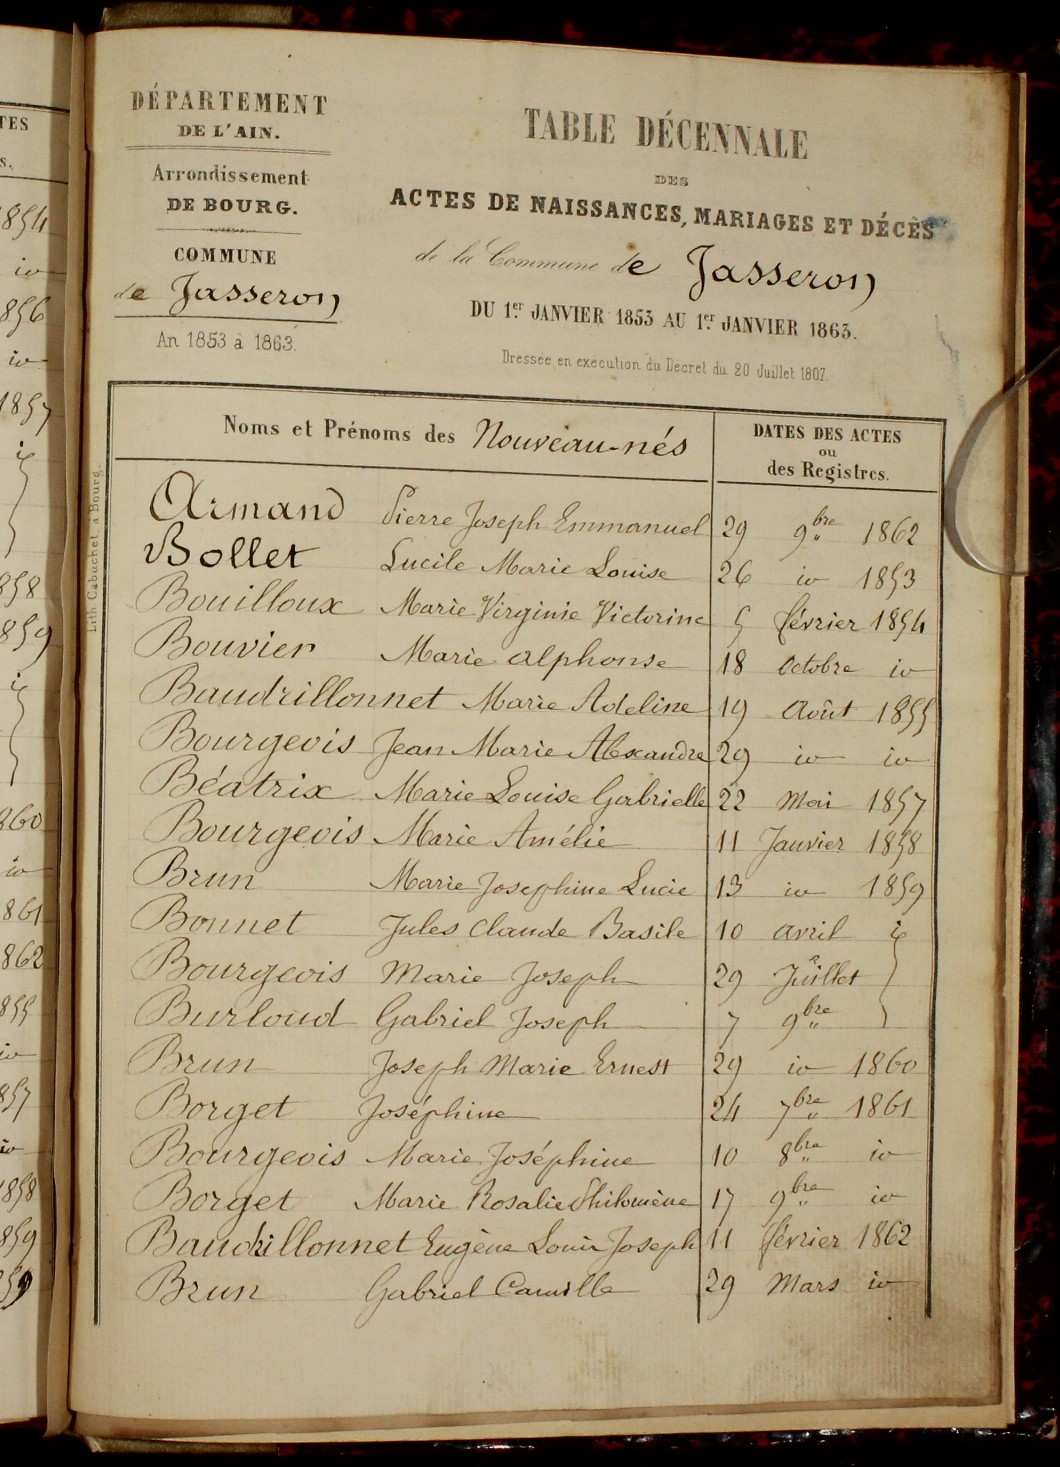 DÉPARTEMENT
DE L'AIN.
Arrondissement
DE BOURG.
COMMUNE
de Jasseron
An 1853 à 1863.
TABLE DÉCENNALE
DES
ACTES DE NAISSANCES, MARIAGES ET DÉCÈS
de la Commune de Jasseron
DU 1er JANVIER 1853 AU 1er JANVIER 1863.
Dressée en execution du Décret du 20 Juillet 1807.
Noms et Prénoms des Nouveau-nés
DATES DES ACTES
ou
des Registres.
Armand Pierre Joseph Emmanuel 29 9bre 1862
Bollet Lucile Marie Louise 26 io 1853
Bouilloux Marie Virginie Victorine 5 février 1854
Bouvier Marie alphonse 18 Octobre io
Baudrillonnet Marie Adeline 19 Août 1855
Bourgeois Jean Marie Alexandre 29 io io
Béatrix Marie Louise Gabrielle 22 Mai 1857
Bourgeois Marie Amélie 11 Janvier 1858
Brun Marie Josephine Lucie 13 io 1859
Bonnet Jules Claude Basile 10 avril io
Bourgeois Marie Joseph 29 Juillet
Burloud Gabriel Joseph 7 9bre
Brun Joseph Marie Ernest 29 io 1860
Borget Joséphine 24 7bre 1861
Bourgeois Marie Joséphine 10 8bre io
Borget Marie Rosalie Philomène 17 9bre io
Baudrillonnet Eugène Louis Joseph 11 février 1862
Brun Gabriel Camille 29 Mars io
Lith. Cabuchet à Bourg.
TES
s.
1854
io
856
io
1857
858
859
860
io
861
862
855
io
857
io
1858
859